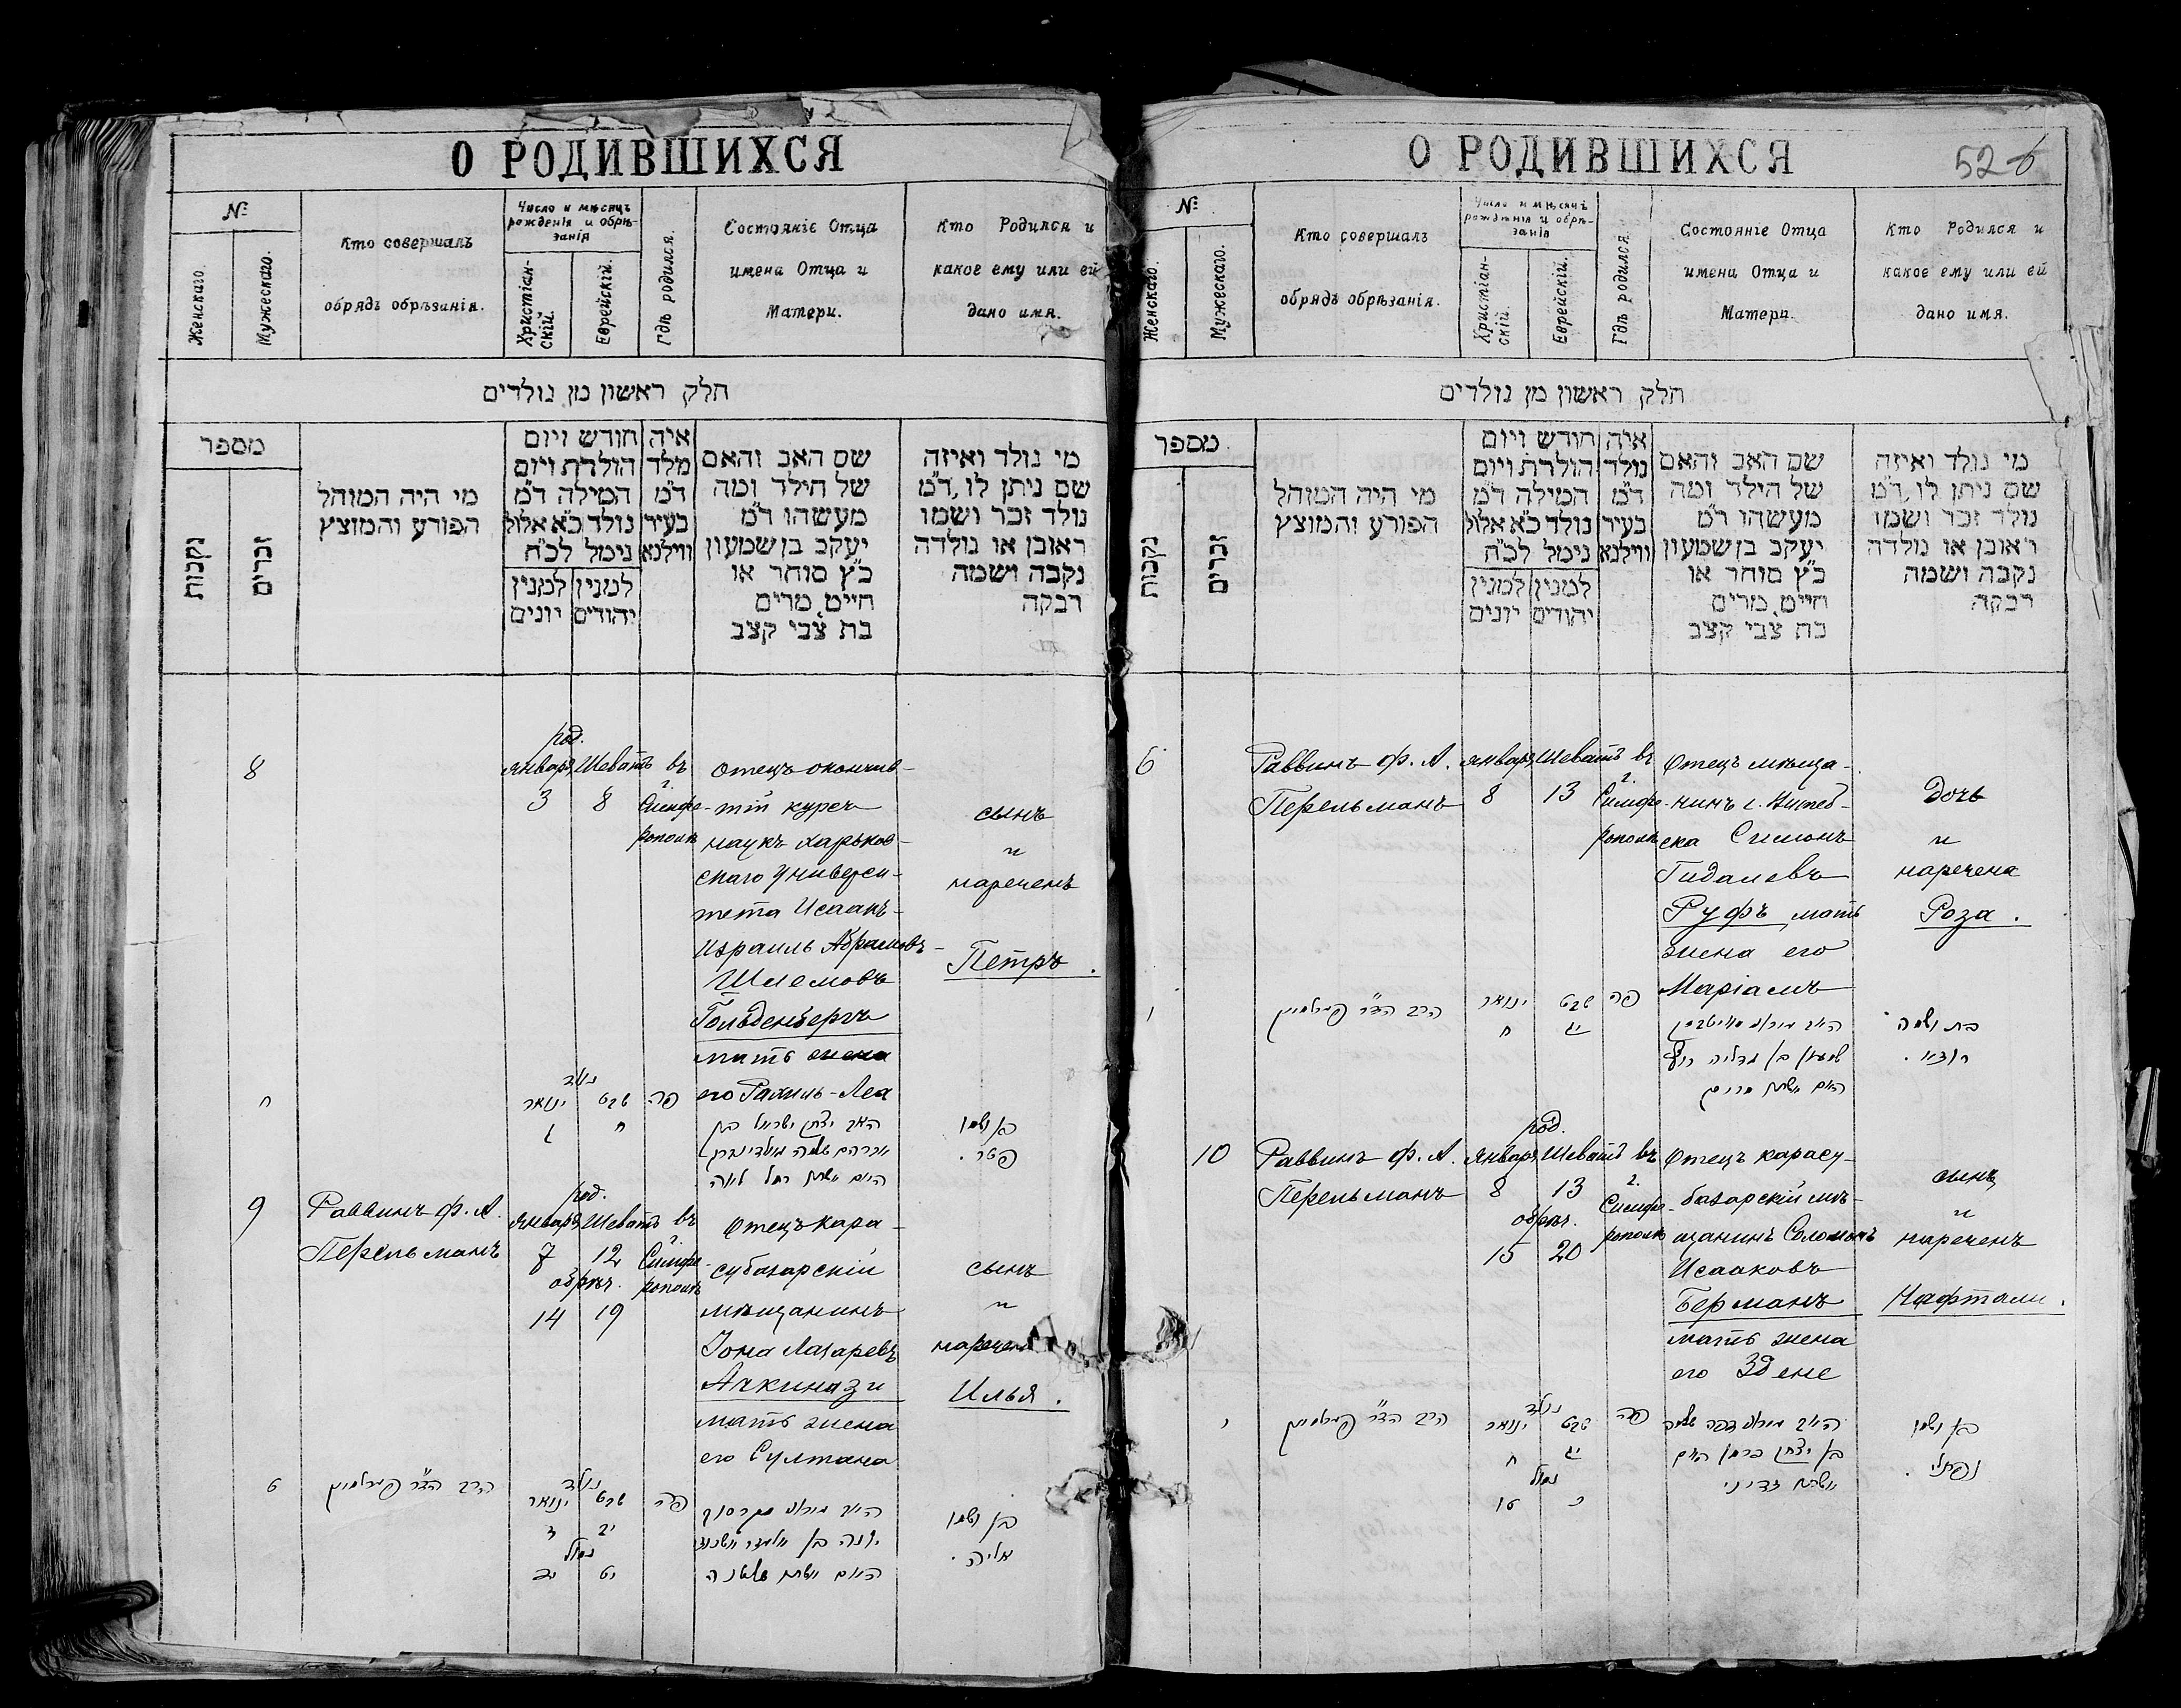 О РОДИВШИХСЯ
№
Женскаго.
Мужескаго.
Кто совершалъ
обрядъ обрѣзанія.
Число и мѣсяцъ
рожденія и обрѣ-
занія
Христіан-
скій.
Еврейскій.
Гдѣ родился.
Состояніе Отца
имена Отца и
Матери.
Кто Родился и
какое ему или ей
дано имя.
חלק ראשון מן נולדים
מספר
נקבות
זכרים
מי היה המוהל
הפורע והמוצץ
חודש ויום
הולדת ויום
המילה ד״מ
נולד כ״א אלול
נימל לכ״ח
למנין
יונים
למנין
יהודים
איה
מלד
ד״מ
בעיר
ווילנא
שם האב והאם
של הילד ומה
מעשהו ד״מ
יעקב בן שמעון
כ״ץ סוחר או
חייט, מרים
בת צבי קצב
מי נולד ואיזה
שם ניתן לו, ד״מ
נולד זכר ושמו
ראובן או נולדה
נקבה ושמה
רבקה
8
род.
январь Шеватъ въ
3 8 г.
Симфе-
рополѣ
Отецъ окончив-
шій курсъ
наукъ харьков-
скаго универси-
тета Исаакъ-
Израиль Абрамовъ-
Шлемовъ
Гольденбергъ
мать жена
его Рахиль-Леа
сынъ
и
нареченъ
Петръ.
ח
נולד
ינואר שבט פה
ג ח
האב יצחק ישראל בן
אברהם שלמה גולדענברג
האם אשתו רחל לאה
בן ושמו
פטר.
9
Раввинъ Ф. А.
Перельманъ
род.
январь Шеватъ въ
7 12 г.
Симфе-
рополѣ
обрѣз.
14 19
Отецъ кара-
субазарскій
мѣщанинъ
Іона Лазаревъ
Ачкинази
мать жена
его Султана
сынъ
и
нареченъ
Илья.
ט
הרב הד״ר פערלמאן
נולד
ינואר שבט פה
ז יב
נמול
יד יט
יונה בן אלעזר אשכנזי
האם אשתו סולטנה
בן ושמו
אליה.
О РОДИВШИХСЯ
52 б
№
Женскаго.
Мужескаго.
Кто совершалъ
обрядъ обрѣзанія.
Число и мѣсяцъ
рожденія и обрѣ-
занія
Христіан-
скій.
Еврейскій.
Гдѣ родился.
Состояніе Отца
имена Отца и
Матери.
Кто Родился и
какое ему или ей
дано имя.
חלק ראשון מן נולדים
מספר
נקבות
זכרים
מי היה המוהל
הפורע והמוצץ
חודש ויום
הולדת ויום
המילה ד״מ
נולד כ״א אלול
נימל לכ״ח
למנין
יונים
למנין
יהודים
איה
נולד
ד״מ
בעיר
ווילנא
שם האב והאם
של הילד ומה
מעשהו ד״מ
יעקב בן שמעון
כ״ץ סוחר או
חייט, מרים
בת צבי קצב
מי נולד ואיזה
שם ניתן לו, ד״מ
נולד זכר ושמו
ראובן או נולדה
נקבה ושמה
רבקה
6
Раввинъ Ф. А.
Перельманъ
январь Шеватъ въ
8 13 г.
Симфе-
рополѣ
Отецъ мѣща-
нинъ г. Витеб-
ска Симонъ
Гидалевъ
Руфъ мать
жена его
Маріамъ
Дочь
и
наречена
Роза.
ו
הרב הד״ר פערלמאן
ינואר שבט פה
ח יג
שמעון בן גדליה רוף
האם אשתו מרים
בת ושמה
ראזא.
10
Раввинъ Ф. А.
Перельманъ
род.
январь Шеватъ въ
8 13 г.
Симфе-
рополѣ
обрѣз.
15 20
Отецъ карасу-
базарскій мѣ-
щанинъ Соломонъ
Исааковъ
Берманъ
мать жена
его Здене
сынъ
и
нареченъ
Нафтали.
י
הרב הד״ר פערלמאן
נולד
ינואר שבט פה
ח יג
נמול
טו כ
בן יצחק ברמן האם
אשתו זדיני
בן ושמו
נפתלי.